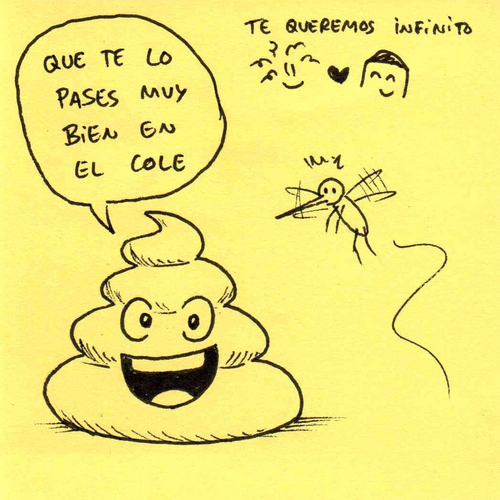 TE QUEREMOS INFINITO
QUE TE LO
PASES MUY
BIEN EN
EL COLE